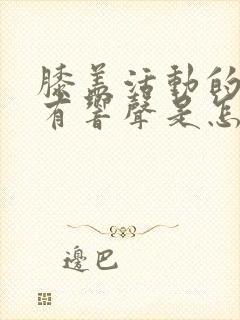 膝盖活動的
有響聲是怎
邊巴